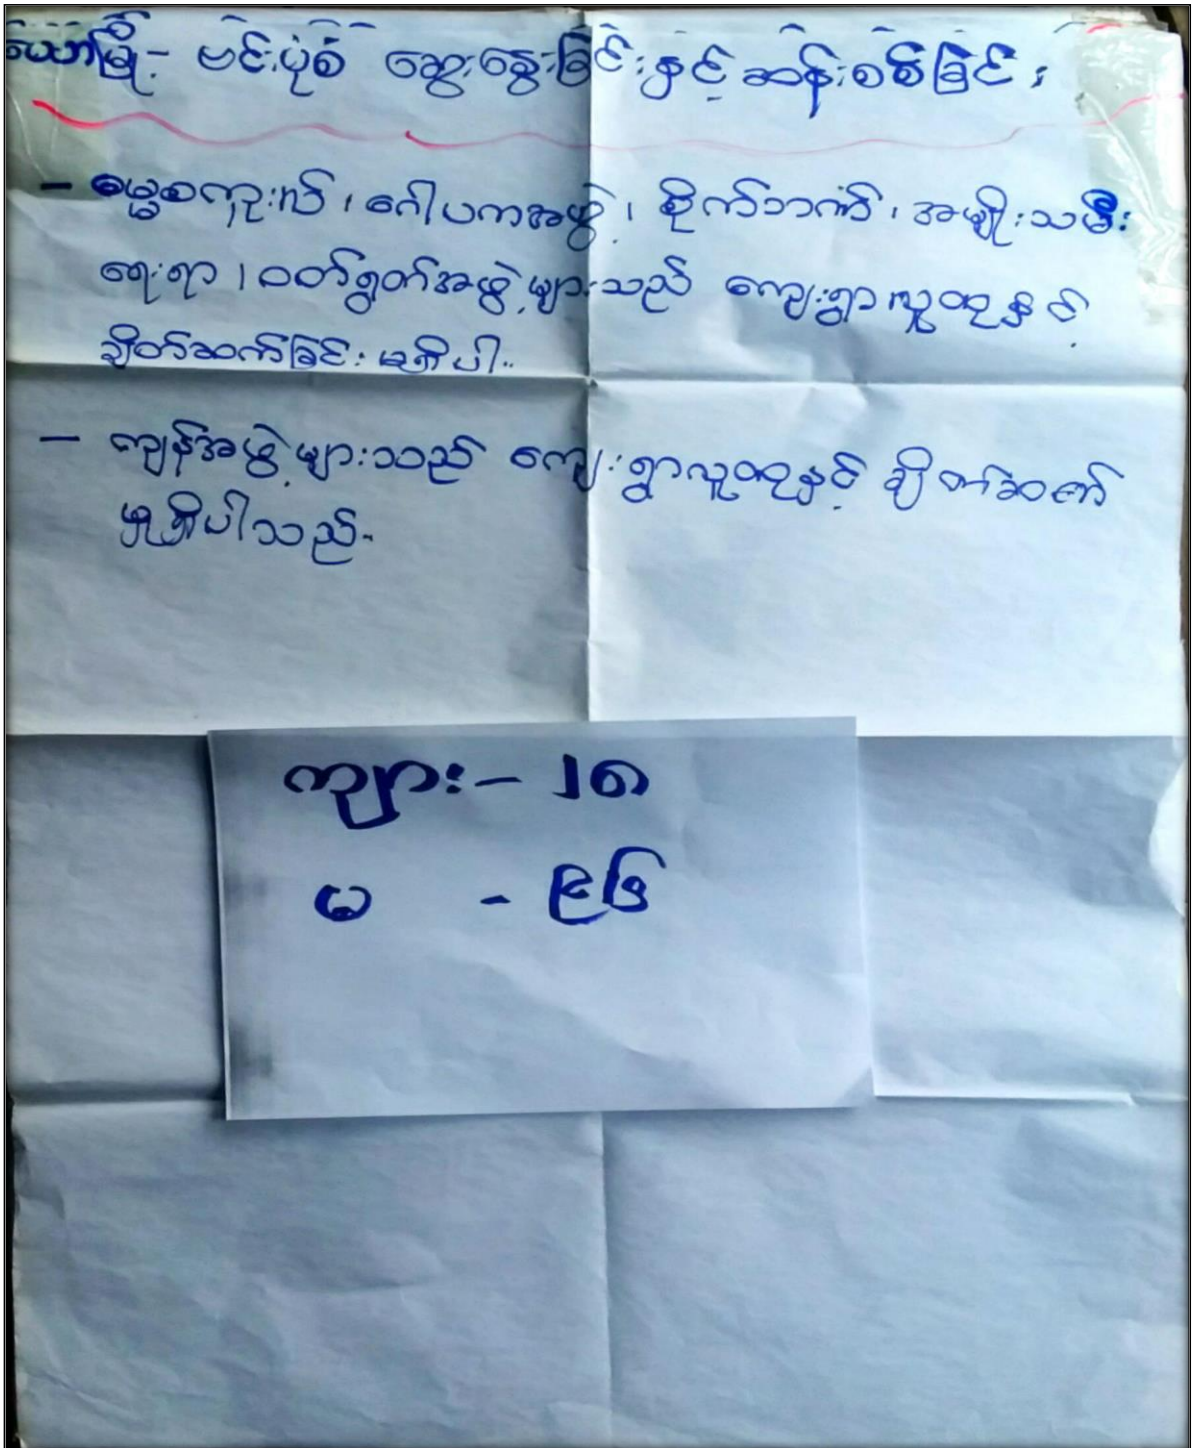 ယော်မြို - ဗင်းပုံစံ ဆွေးနွေးခြင်းနှင့် ဆန်းစစ်ခြင်း
- ဂေါပကအဖွဲ့၊ စိုက်ဘဏ်၊ အမျိုးသမီး
ရေးရာ၊ ဝတ်ရွတ်အဖွဲ့များသည် ကျေးရွာလူထုနှင့်
ချိတ်ဆက်ခြင်း မရှိပါ။
- ကျန်အဖွဲ့များသည် ကျေးရွာလူထုနှင့် ချိတ်ဆက်
မှုရှိပါသည်။
ကျား - ၂၈
မ -